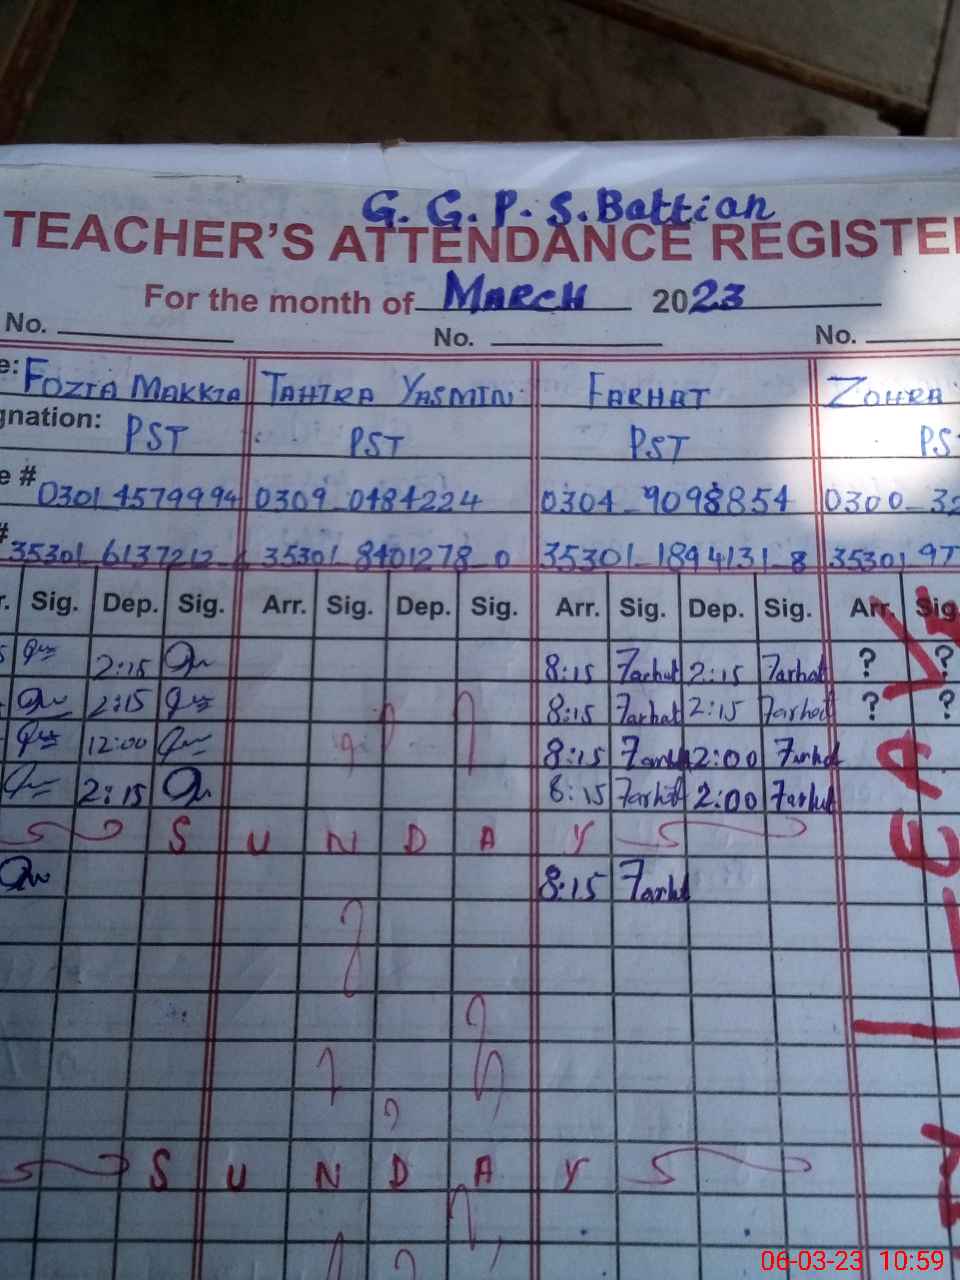 G. G. P. S. Battian
TEACHER'S ATTENDANCE REGISTE
For the month of MARCH 2023
No. No. No.
e: FOZIA MAKKIA TAHIRA YASMIN FARHAT ZOHRA
gnation: PST PST PST PS
e # 0301_4579994 0309_0484224 0304_9098854 0300_32
# 35301_6137212_ 35301_8401278_0 35301_1894131_8 35301_97
r. Sig. Dep. Sig. Arr. Sig. Dep. Sig. Arr. Sig. Dep. Sig. Arr. Sig
2:15 8:15 Farhat 2:15 Farhat ? ?
2:15 8:15 Farhat 2:15 Farhat ? ?
12:00 8:15 Farhat 12:00 Farhat
2:15 8:15 Farhat 2:00 Farhat
S U N D A Y
8:15 Farhat
S U N D A Y
LEAVE
06-03-23 10:59